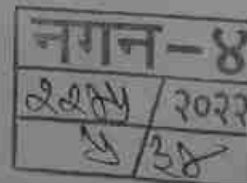 नगन-४
२२७५ / २०२२
५ / ३४